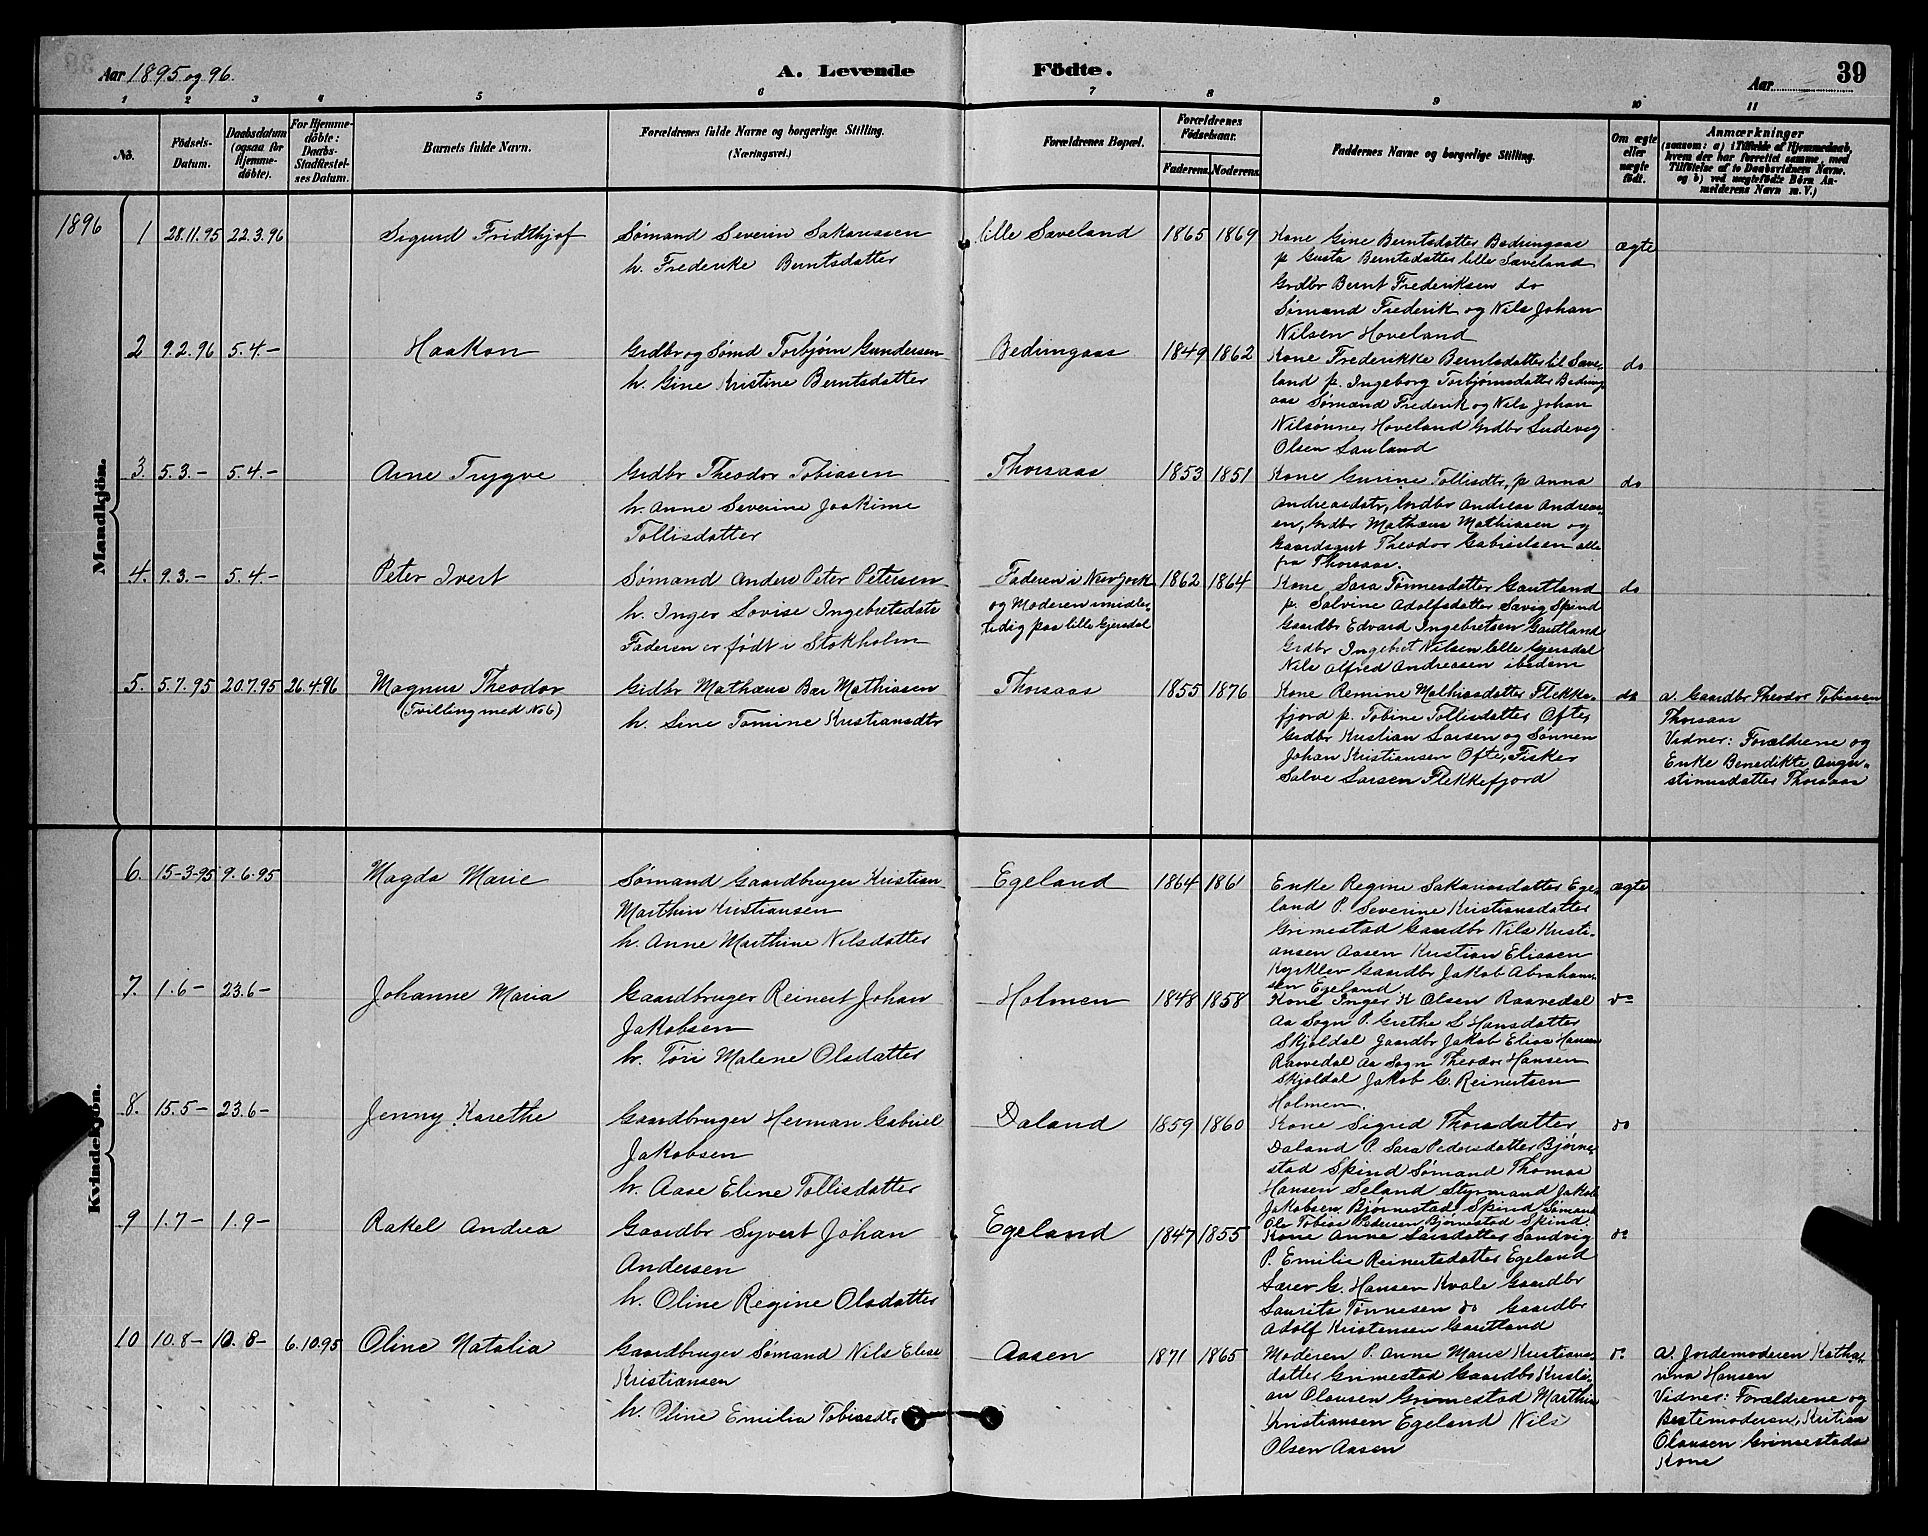 Aar 1895 og 96.
A. Levende Födte.
Aar
39
1 2 3 4 5 6 7 8 9 10 11
No.
Födsels-Datum.
Daabsdatum (ogsaa for Hjemme-döbte).
For Hjemme-döbte: Daabs-Stadfæstel-ses Datum.
Barnets fulde Navn.
Forældrenes fulde Navne og borgerlige Stilling. (Næringsvei.)
Forældrenes Bopæl.
Forældrenes Födselsaar.
Faderens. Moderens.
Faddernes Navne og borgerlige Stilling.
Om ægte eller uægte födt.
Anmærkninger
(saasom: a) i Tilfælde af Hjemmedaab, hvem der har forrettet samme, med Tilföielse af to Daabsvidners Navne, og b) ved uægtefödte Börn An-melderens Navn m. V.)
Mandkjön.
1896
1 28.11.95 22.3.96
Sigurd Fridthjof
Sømand Severin Sakariassen
h. Frederike Berntsdatter
lille Sæveland
1865 1869
Kone Gine Berntsdatter Bedringaas
p Gusta Berntsdatter lille Sæveland
Grdbr Bernt Frederiksen do
Sømand Frederik og Nils Johan
Nilsen Hoveland
ægte
2 9.2.96 5.4-
Haakon
Grdbr og Sømd Torbjørn Gundersen
h. Gine Kristine Berntsdatter
Bedringaas
1849 1862
Kone Frederikke Berntsdatter lil Sæve-
land p. Ingeborg Torbjørnsdatter Bedring
aas Sømand Frederik og Nils Johan
Nilsønner Hoveland Grdbr Ludevig
Olsen Sauland
do
3. 5.3.- 5.4-
Arne Trygve
Grdbr Theodor Tobiasen
h. Anne Severine Joakime
Tollisdatter
Thorsaas
1853 1851
Kone Gurine Tollisdtr, p Anna
Andreasdatr, Grdbr Andreas Andreas-
en, Grdbr Mathæus Mathiasen og
Gaardsgut Theodor Gabrielsen alle
fra Thorsaas.
do
4. 9.3.- 5.4-
Peter Ivert
Sømand Anders Peter Petersen
h. Inger Lovise Ingebretsdatr
Faderen er født i Stokholm
Faderen i Newjork
og Moderen imidler-
tidig paa lille Gjersdal
1862 1864
Kone Sara Tønnesdatter Gautland
p. Salvine Adolfsdatter Sævig Spind
Gaardbr Edvard Ingebretsen Gautland
Grdbr Ingebret Nilsen lille Gjersdal
Nils Alfred Andreassen ibedem
do
5. 5.7.95 20.7.95 26.4.96
Magnus Theodor
(Tvilling med No 6)
Grdbr Mathæus Ber Mathiasen
h. Sine Tomine Kristiansdtr
Thorsaas
1855 1876
Kone Remine Mathiasdatter Flekke-
fjord p. Tobine Tollisdatter Ofte,
Grdbr Kristian Larsen og Sønnen
Johan Kristiansen Ofte, Fisker
Salve Larsen Flekkefjord
do
a. Gaardbr Theodor Tobiasen
Thorsaas
Vidner: Forældrene og
Enke Benedikte Augu-
stinusdatter Thorsaas
Kvindekjön.
6. 15-3-95 9.6.95
Magda Marie
Sømand Gaardbruger Kristian
Marthin Kristiansen
h. Anne Marthine Nilsdatter
Egeland
1864 1861
Enke Regine Sakariasdatter Ege-
land P. Severine Kristiansdatter
Grimestad Gaardbr Nils Kristi-
ansen Aasen Kristian Eliassen
Kyrklev Gaardbr Jakob Abraham-
sen Egeland
ægte
7. 1.6- 23.6-
Johanne Maria
Gaardbruger Reinert Johan
Jakobsen
h. Tøri Malene Olsdatter
Holmen
1848 1858
Kone Inger K Olsen Raavedal
Aa Sogn P. Grethe S Hansdatter
Skjoldal Gaardbr Jakob Elias Hansen
Raavedal Aa Sogn Theodor Hansen
Skjoldal Jakob G. Reinertsen
Holmen.
do
8. 15.5- 23.6-
Jenny Karethe
Gaardbruger Herman Gabriel
Jakobsen
h. Aase Eline Tollisdatter
Daland
1859 1860
Kone Sigrid Thorsdatter
Daland P. Sara Pedersdatter Bjørne-
stad Spind Sømand Thomas
Hansen Seland Styrmand Jakob
Jakobsen Bjørnestad Spind Sømand
Ole Tobias Pedersen Bjørnestad Spind.
do
9 1.7- 1.9-
Rakel Andrea
Gaardbr Syvert Johan
Andersen
h. Oline Regine Olsdatter
Egeland
1847 1855
Kone Anne Larsdatter Sandvig
P. Emilie Reinertsdatter Egeland
Lærer G. Hansen Kvale Gaardbr
Laurits Tønnesen do Gaardbr
Adolf Kristensen Gautland
do
10 10.8- 10.8- 6.10.95
Oline Natalia
Gaardbruger Sømand Nils Elias
Kristiansen
h. Oline Emilia Tobiasdtr
Aasen
1871 1865
Moderen P. Anne Marie Kristians-
datter Grimestad Gaardbr Kristi-
an Olausen Grimestad Marthin
Kristiansen Egeland Nils
Olsen Aasen
do
a. Jordemoderen Katha-
rina Hansen
Vidner: Forældrene og
Bestemoderen, Kristian
Olausen Grimestads
Kone